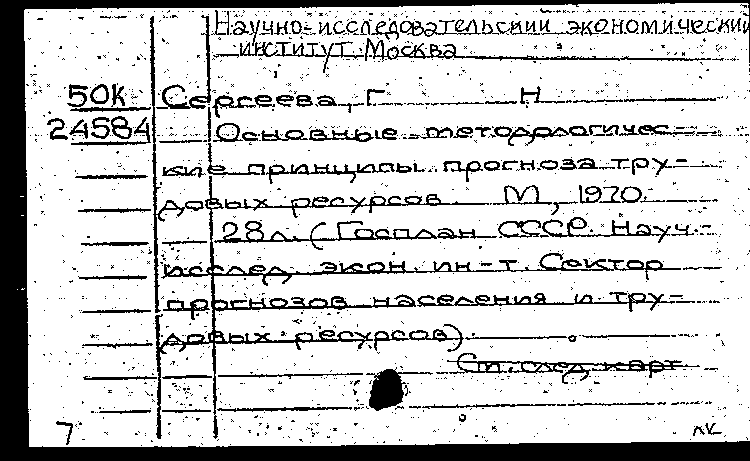 Научно-исследовательский экономический
институт. Москва
50К Сергеева, Г Н
24584 Основные методологичес-
кие принципы прогноза тру-
довых ресурсов. М, 1970.
28л. (Госплан СССР. Науч.-
исслед. экон. ин-т. Сектор
прогнозов населения и тру-
довых ресурсов).
См. след. карт
7